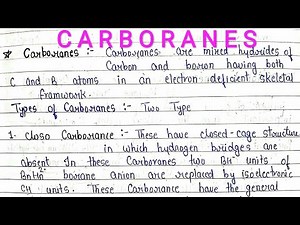 CARBORANES
* Carboranes :- Carboranes are mixed hydrides of
Carbon and boron having both
C and B atoms in an electron deficient skeletal
framwork.
Types of Carboranes :- Two Type
1- closo Carborance :- These have closed-cage structure
in which hydrogen bridges are
absent In these Carboranes two BH⁻ units of
BnHn²⁻ borane anion are replaced by isoelectronic
CH units. These Carborance have the general